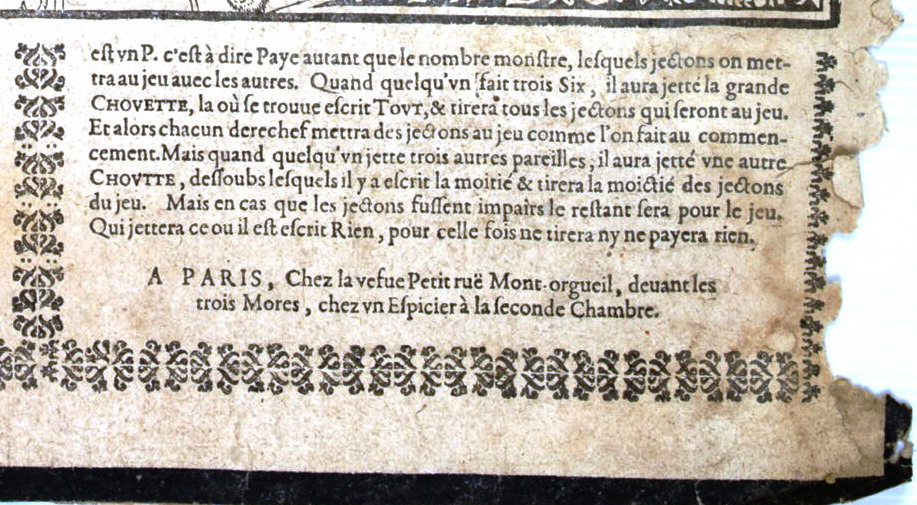 eſt vn P. c'eſt à dire Paye autant que le nombre monſtre, leſquels jectons on met-
tra au jeu auec les autres. Quand quelqu'vn fait trois Six, il aura jetté la grande
CHOVETTE, la où ſe trouue eſcrit TOVT, & tirera tous les jectons qui ſeront au jeu.
Et alors chacun derechef mettra des jectons au jeu comme l'on fait au commen-
cement. Mais quand quelqu'vn jette trois autres pareilles, il aura jetté vne autre
CHOVTTE, deſſoubs leſquels il y a eſcrit la moitié & tirera la moictié des jectons
du jeu. Mais en cas que les jectons fuſſent impairs le reſtant ſera pour le jeu.
Qui jettera ce ou il eſt eſcrit Rien, pour celle fois ne tirera ny ne payera rien.
A PARIS, Chez la veſue Petit ruë Mont-orgueil, deuant les
trois Mores, chez vn Eſpicier à la ſeconde Chambre.